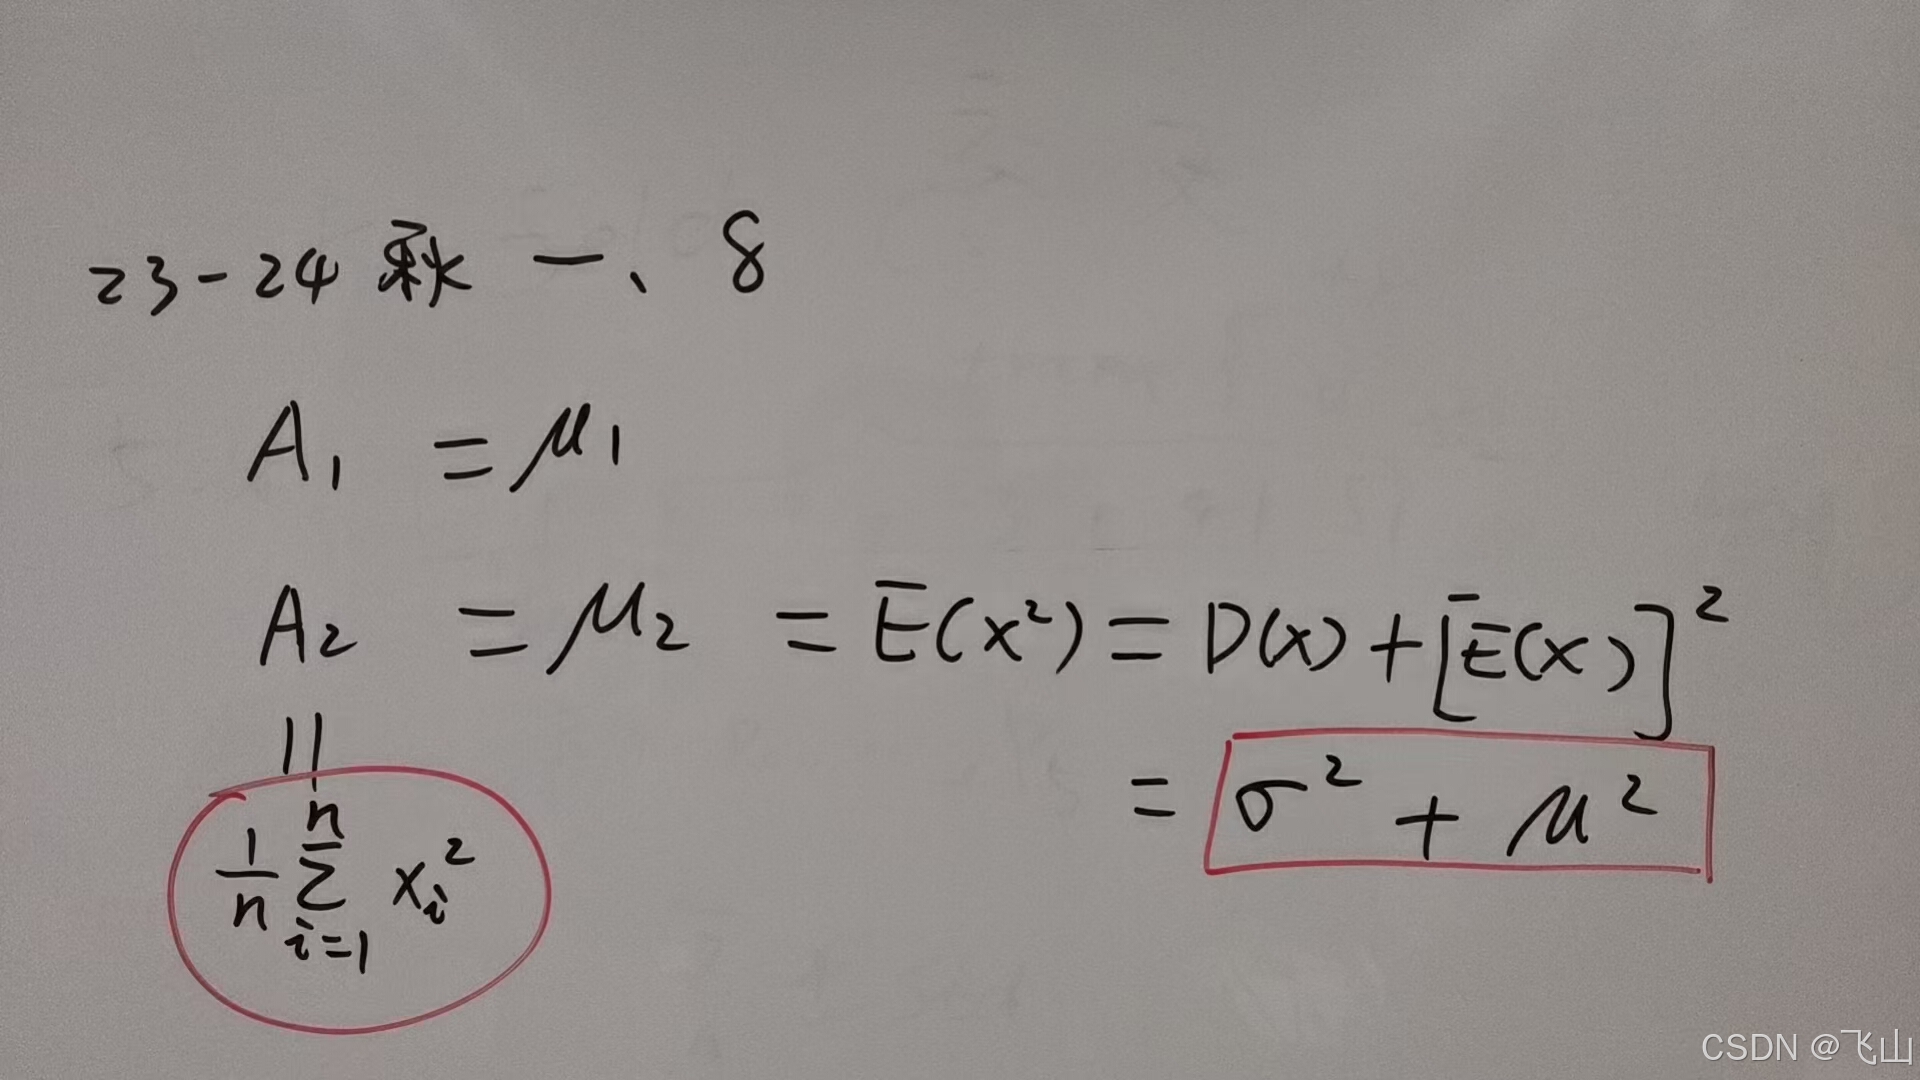 23-24 秋 一、8
A₁ = μ₁
A₂ = μ₂ = E(x²) = D(x) + [E(x)]²
|| = σ² + μ²
1/n ∑ᵢ₌₁ⁿ xᵢ²
CSDN @飞山